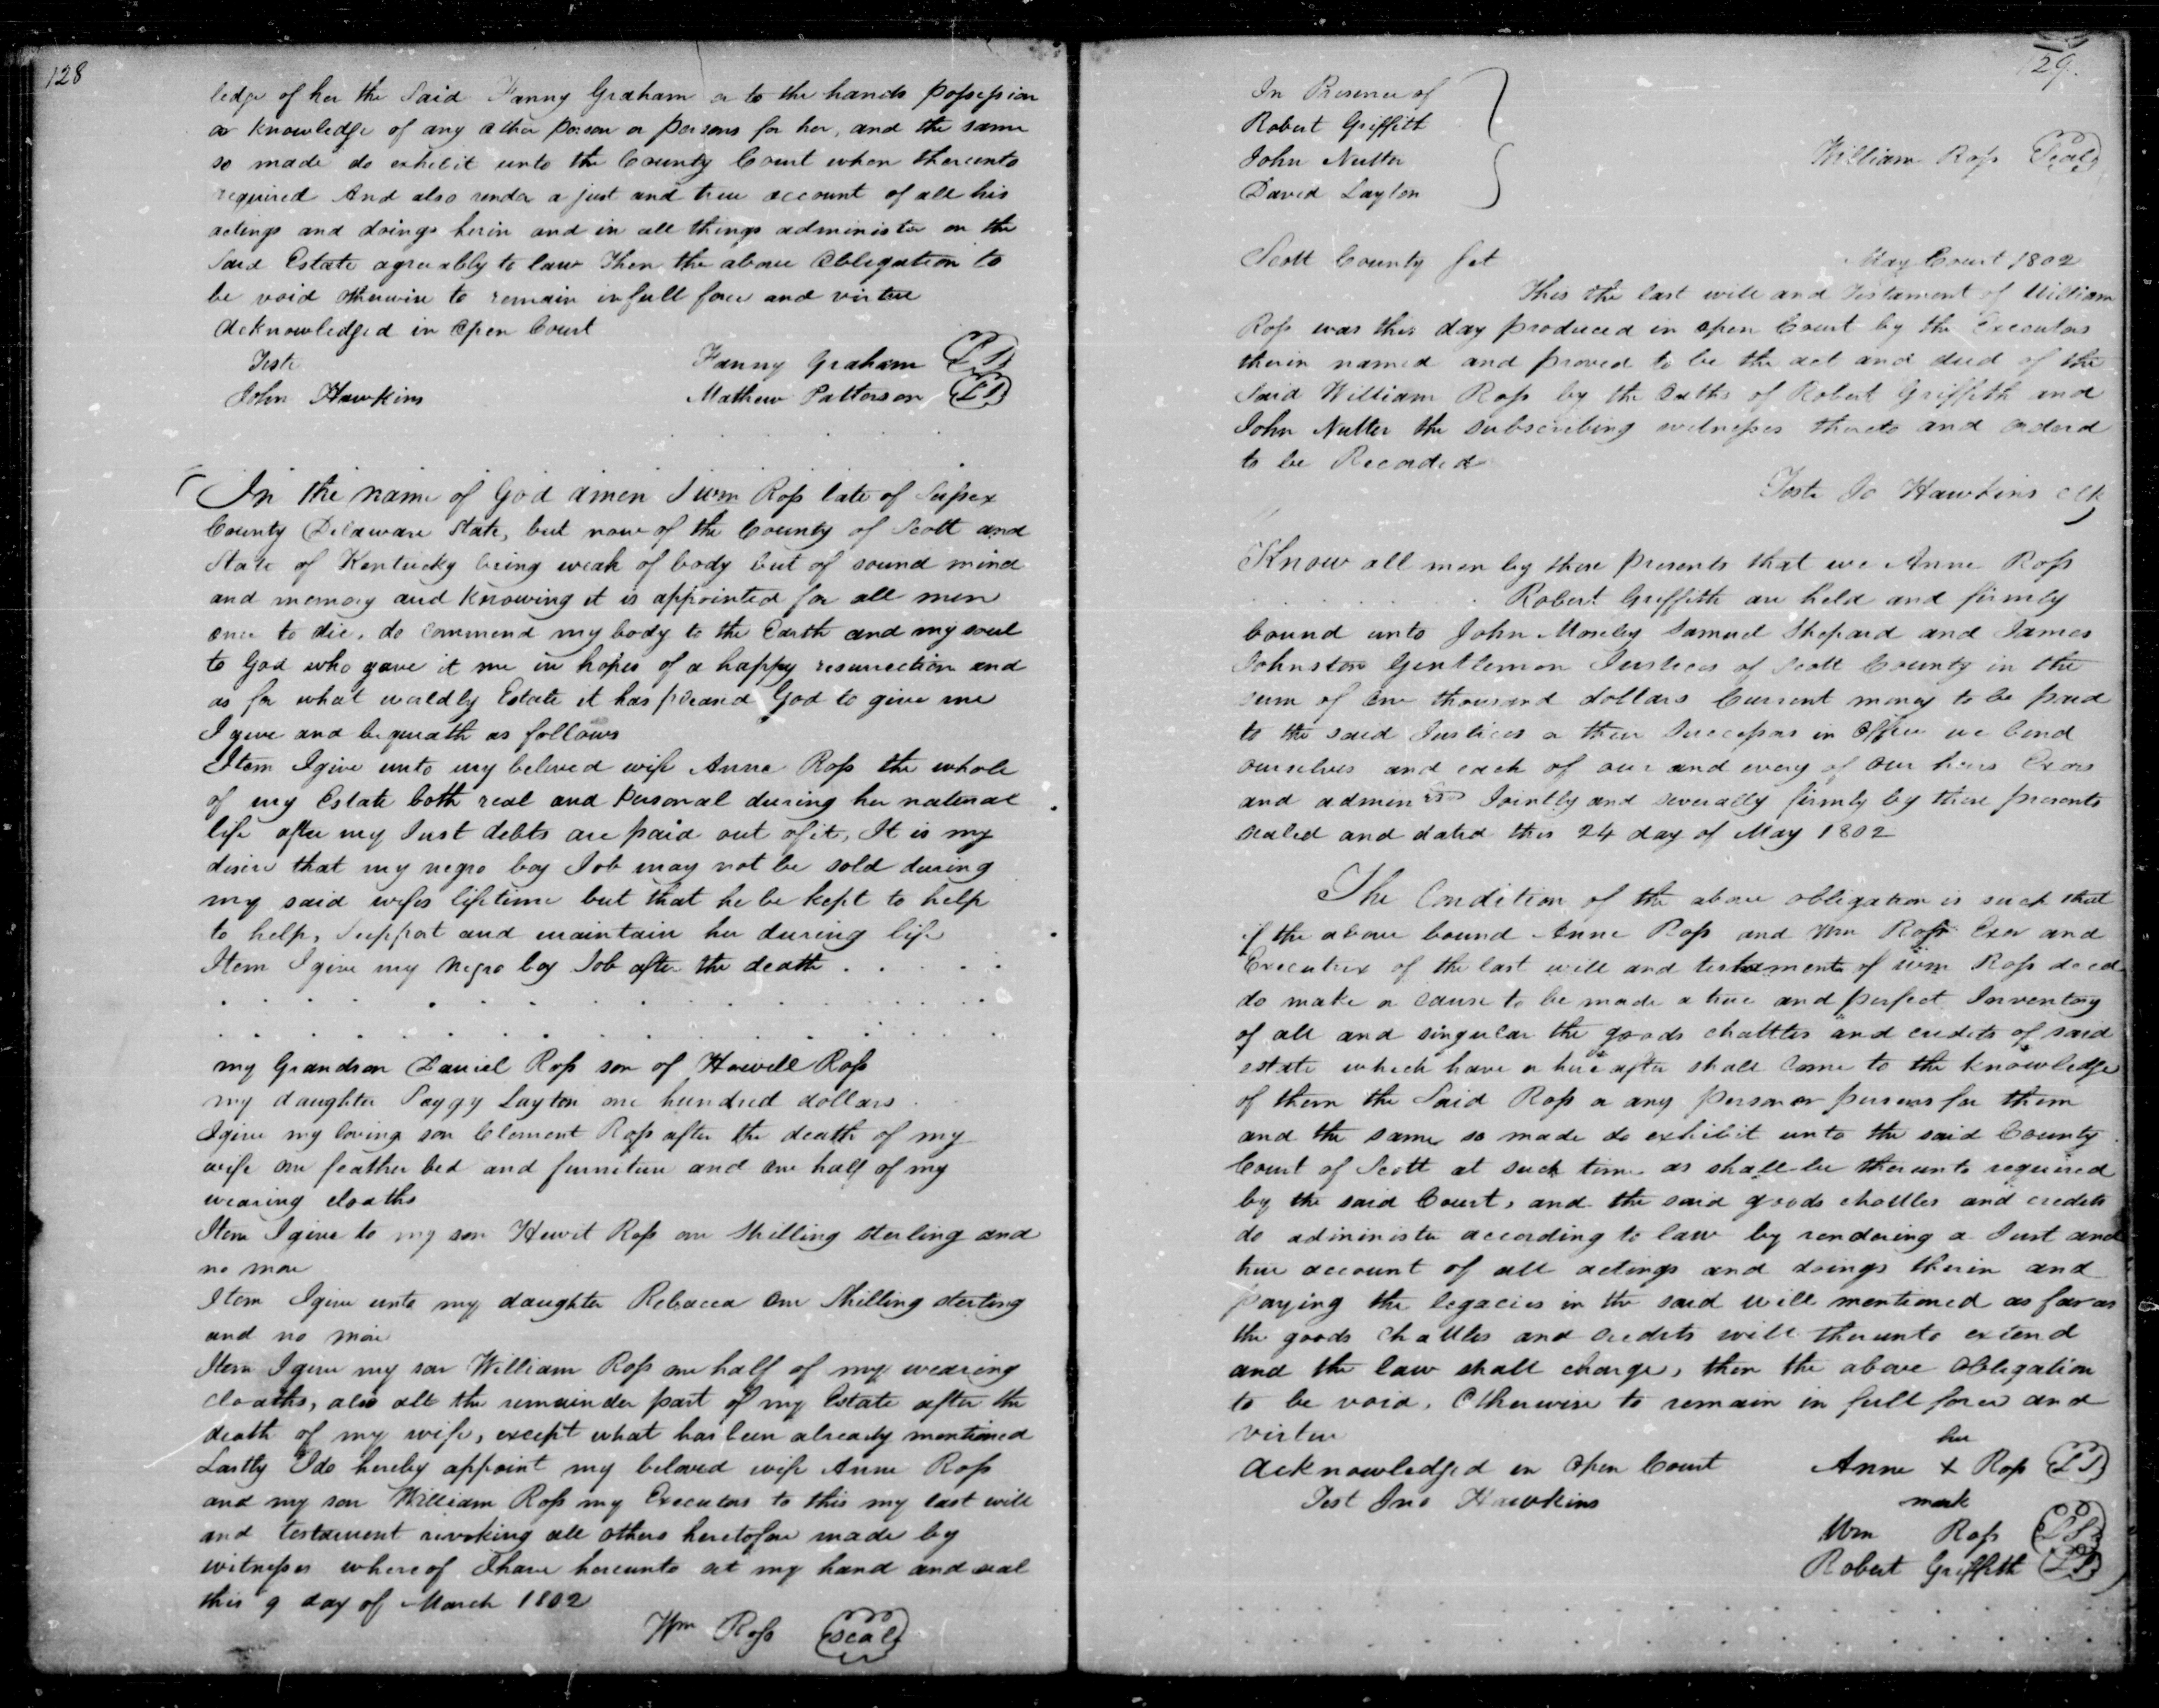 128
ledge of her the Said Fanny Graham or to the hands possession
or knowledge of any other person or persons for her, and the same
so made do exhibit unto the County Court when thereunto
required And also render a just and true account of all his
actings and doings herin and in all things administer on the
Said Estate agreeably to law Then the above Obligation to
be void otherwise to remain in full force and virtue
Acknowledged in Open Court
Teste
Fanny Graham LS
John Hawkins
Mathew Patterson LS
In the name of God amen I Wm Ross late of Sussex
County Delaware State, but now of the County of Scott and
State of Kentucky being weak of body but of sound mind
and memory and knowing it is appointed for all men
once to die, do commend my body to the Earth and my soul
to God who gave it me in hopes of a happy resurrection and
as for what worldly Estate it has pleased God to give me
I give and bequeath as follows
Item I give unto my beloved wife Anna Ross the whole
of my Estate both real and personal during her natural
life after my Just debts are paid out of it, It is my
desire that my negro boy Job may not be sold during
my said wifes lifetime but that he be kept to help
to help, Support and maintain her during life
Item I give my Negro boy Job after the death . . . . .
my Grandson Daniel Ross son of Howell Ross
my daughter Paygy Layton one hundred dollars
I give my loving son Clement Ross after the death of my
wife one feather bed and furniture and one half of my
wearing cloaths
Item I give to my son Hewit Ross one Shilling sterling and
no more
Item I give unto my daughter Rebacca One Shilling sterling
and no more
Item I give my son William Ross one half of my wearing
cloaths, also all the remainder part of my Estate after the
death of my wife, except what has been already mentioned
Lastly I do hereby appoint my beloved wife Anne Ross
and my son William Ross my Executors to this my last will
and testament revoking all others heretofore made by
witnesses whereof I have hereunto set my hand and seal
this 9 day of March 1802
Wm Ross Seal
129.
In Presence of
Robert Griffith
John Nutter
William Ross Seal
David Layton
Scott County Sct
May Court 1802
This the last will and Testament of William
Ross was this day produced in open Court by the Executors
therin named and proved to be the act and deed of the
Said William Ross by the Oaths of Robert Griffith and
John Nutter the subscribing witnesses thereto and orderd
to be Recorded
Teste Jo Hawkins Clk
Know all men by these presents that we Anne Ross
Robert Griffith are held and firmly
bound unto John Mosely Samuel Shepard and James
Johnston Gentlemen Justices of Scott County in the
sum of One thousand dollars Current money to be paid
to the said Justices or their Successors in Office we bind
ourselves and each of our and every of our heirs Exors
and admin rs Jointly and severally firmly by these presents
sealed and dated this 24 day of May 1802
The Condition of the above obligation is such that
if the above bound Anne Ross and Wm Ross Exor and
Executrix of the last will and testament of Wm Ross decd
do make or cause to be made a true and perfect Inventory
of all and singular the goods chattles and credits of said
estate which have or hereafter shall Come to the knowledge
of them the Said Ross or any person or persons for them
and the same so made do exhibit unto the said County
Court of Scott at such time as shall be thereunto required
by the said Court, and the said goods chattles and credits
do administer according to law by rendering a Just and
true account of all actings and doings therin and
paying the legacies in the said will mentioned as far as
the goods Chattles and Credits will thereunto extend
and the law shall charge, then the above Obligation
to be void, Otherwise to remain in full force and
virtue
her
Acknowledged in Open Court
Anne X Ross LS
Test Jno Hawkins
mark
Wm Ross LS
Robert Griffith LS